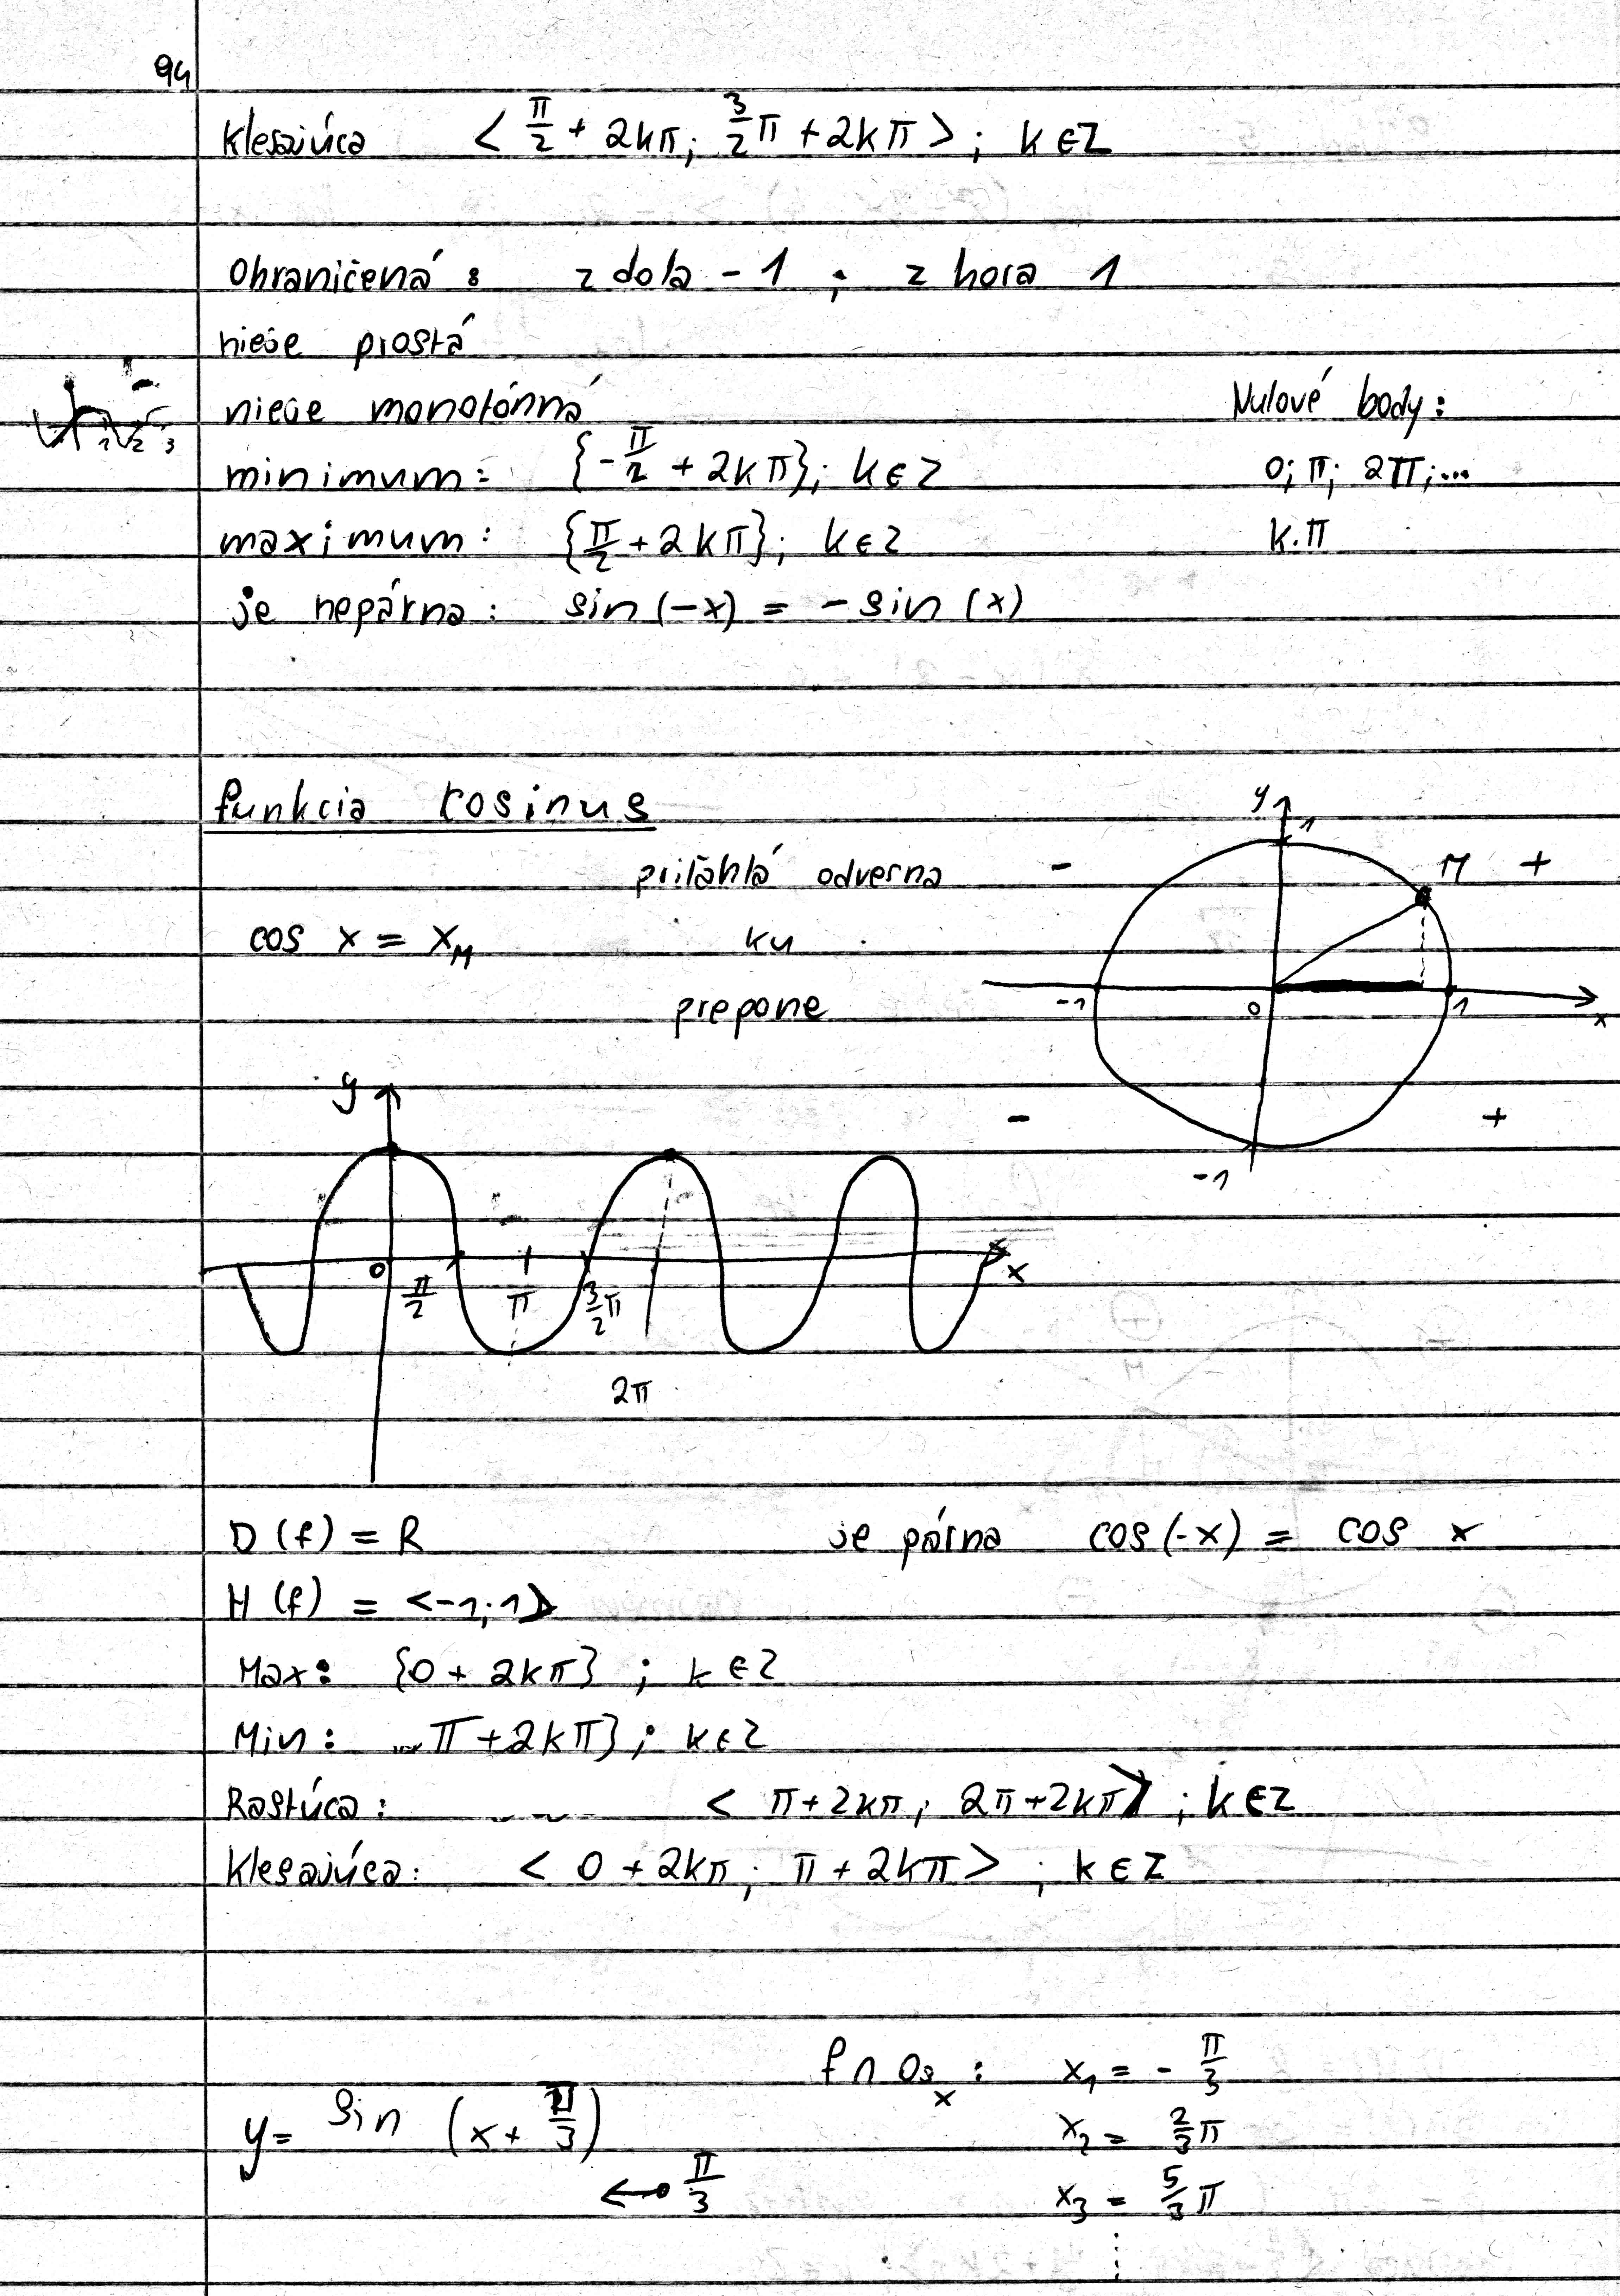 94
Klesajúca < π/2 + 2kπ; 3/2 π + 2kπ > ; k ∈ Z
Ohraničená : z dola - 1 ; z hora 1
nieje prostá
nieje monotónná
minimum: {-π/2 + 2kπ}; k ∈ Z
maximum: {π/2 + 2kπ}; k ∈ Z
je nepárna: sin (-x) = - sin (x)
Nulové body:
0; π; 2π;...
k.π
1 2 3
funkcia kosinus
priľahlá odvesna
cos x = x_M ku
prepone
y 1
- M +
-1 0 1 x
- +
-1
y
0 π/2 π 3/2 π x
2π
D (f) = R je párna cos(-x) = cos x
H (f) = <-1; 1>
Max: {0 + 2kπ} ; k ∈ Z
Min: π + 2kπ} ; k ∈ Z
Rastúca: < π + 2kπ ; 2π + 2kπ> ; k ∈ Z
Klesajúca: < 0 + 2kπ ; π + 2kπ > ; k ∈ Z
y = sin (x + π/3)
← π/3
f ∩ os_x : x₁ = - π/3
x₂ = 2/3 π
x₃ = 5/3 π
⋮